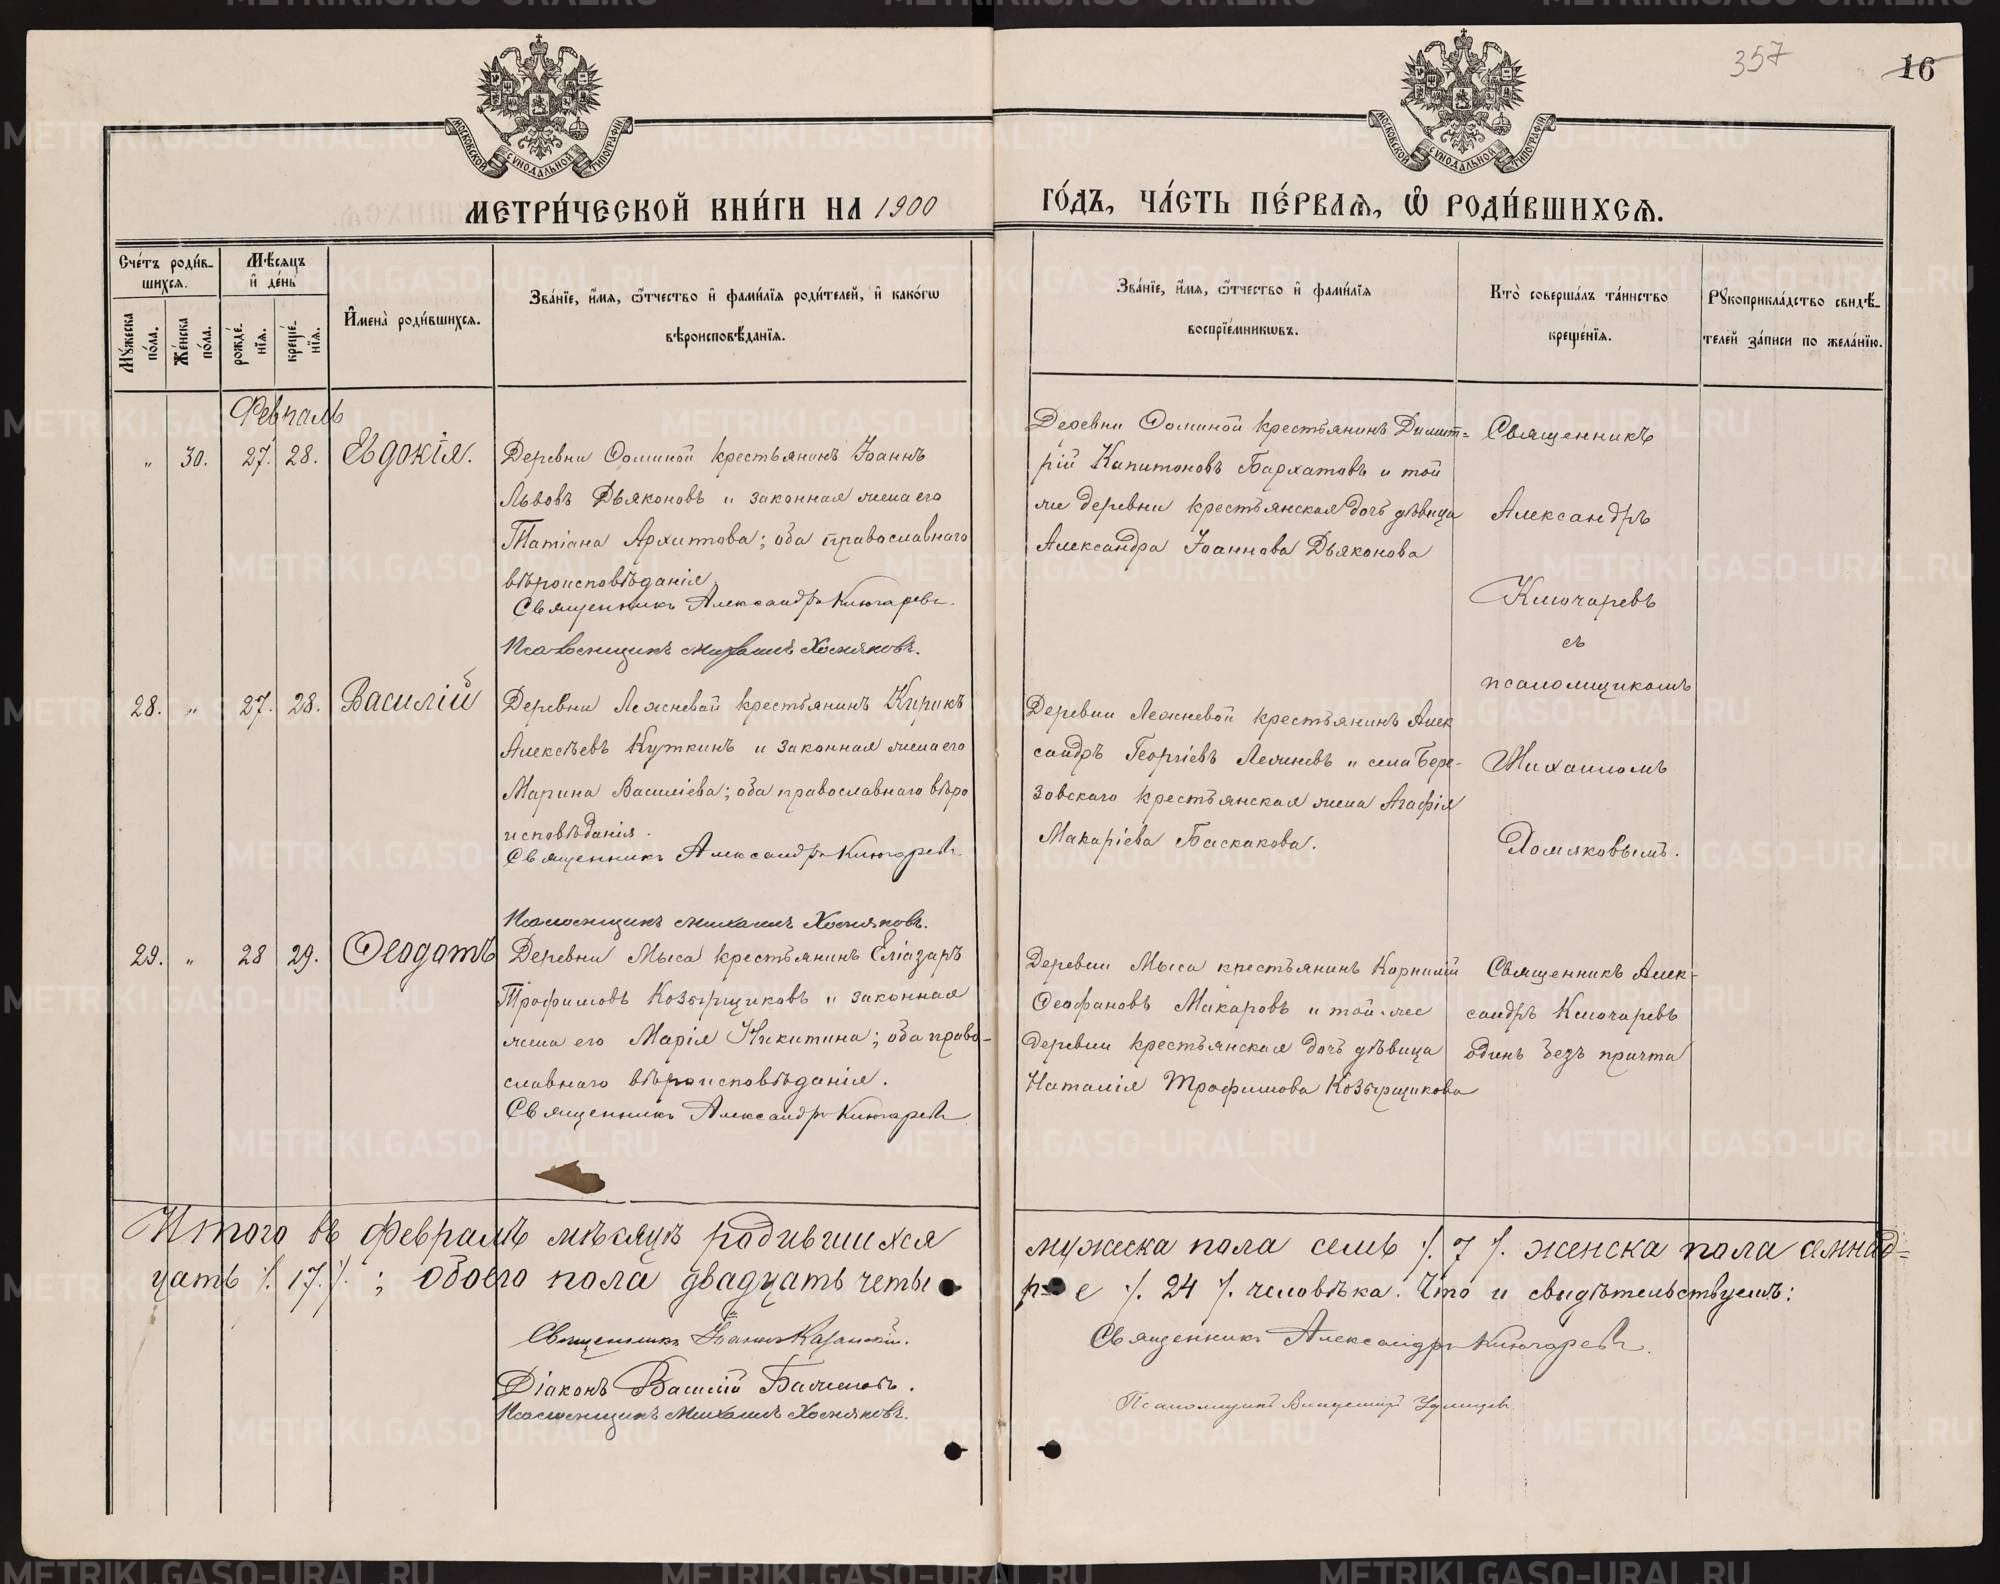 357
16
МОСКОВСКОЙ СѴНОДАЛЬНОЙ ТИПОГРАФІИ
МОСКОВСКОЙ СѴНОДАЛЬНОЙ ТИПОГРАФІИ
МЕТРИ́ЧЕСКОЙ КНИ́ГИ НА 1900
ГО́ДЪ, ЧА́СТЬ ПЕ́РВАѦ, Ѽ РОДИ́ВШИХСѦ.
Сче́тъ роди́в-
шихся.
Мѣ́сяцъ
и҆ де́нь
Мꙋ́жеска
по́ла.
Же́нска
по́ла.
рожде́-
нїя.
креще́-
нїя.
И҆мена̀ роди́вшихся.
Зва́нїе, и҆́мя, ѻ҆́тчество и҆ фами́лїя роди́телей, и҆ како́гѡ
вѣроисповѣ́данїя.
Зва́нїе, и҆́мя, ѻ҆́тчество и҆ фами́лїя
воспрїе́мникѡвъ.
Кто̀ соверша́лъ та́инство
креще́нїя.
Рꙋкоприкла́дство свидѣ́-
телей за́писи по жела́нїю.
Февраль
" 30. 27. 28. Евдокія.
Деревни Ѳоминой крестьянинъ Іоаннъ
Львовъ Дьяконовъ и законная жена его
Татіана Архипова; оба православнаго
вѣроисповѣданія.
Священникъ Александръ Ключаревъ.
Псаломщикъ Михаилъ Хомяковъ.
Деревни Ѳоминой крестьянинъ Димит=
рій Капитоновъ Бархатовъ и той
же деревни крестьянская дочь дѣвица
Александра Іоаннова Дьяконова
Священникъ
Александръ
Ключаревъ
съ
псаломщикомъ
Михаиломъ
Хомяковымъ.
28. " 27. 28. Василій
Деревни Лежневой крестьянинъ Кирикъ
Алексѣевъ Куткинъ и законная жена его
Марина Василіева; оба православнаго вѣро
исповѣданія.
Священникъ Александръ Ключаревъ
Псаломщикъ Михаилъ Хомяковъ.
Деревни Лежневой крестьянинъ Алек
сандръ Георгіевъ Лежневъ и села Бере-
зовскаго крестьянская жена Агафія
Макаріева Баскакова.
29. " 28 29. Ѳеодотъ
Деревни Мыса крестьянинъ Еліазаръ
Трофимовъ Козырщиковъ и законная
жена его Марія Никитина; оба право-
славнаго вѣроисповѣданія.
Священникъ Александръ Ключаревъ
Деревни Мыса крестьянинъ Корнилій
Ѳеофановъ Макаровъ и той-же
деревни крестьянская дочь дѣвица
Наталія Трофимова Козырщикова
Священникъ Алек-
сандръ Ключаревъ
одинъ безъ причта
Итого въ февралѣ мѣсяцѣ родившихся
мужеска пола семь /. 7 /. женска пола семнад=
цать /. 17. /. ; обоего пола двадцать четы
ре /. 24 /. человѣка. Что и свидѣтельствуемъ:
Священникъ Іоаннъ Казанскій.
Священникъ Александръ Ключаревъ.
Діаконъ Василій
Псаломщикъ Михаилъ Хомяковъ.
Псаломщикъ
METRIKI.GASO-URAL.RU